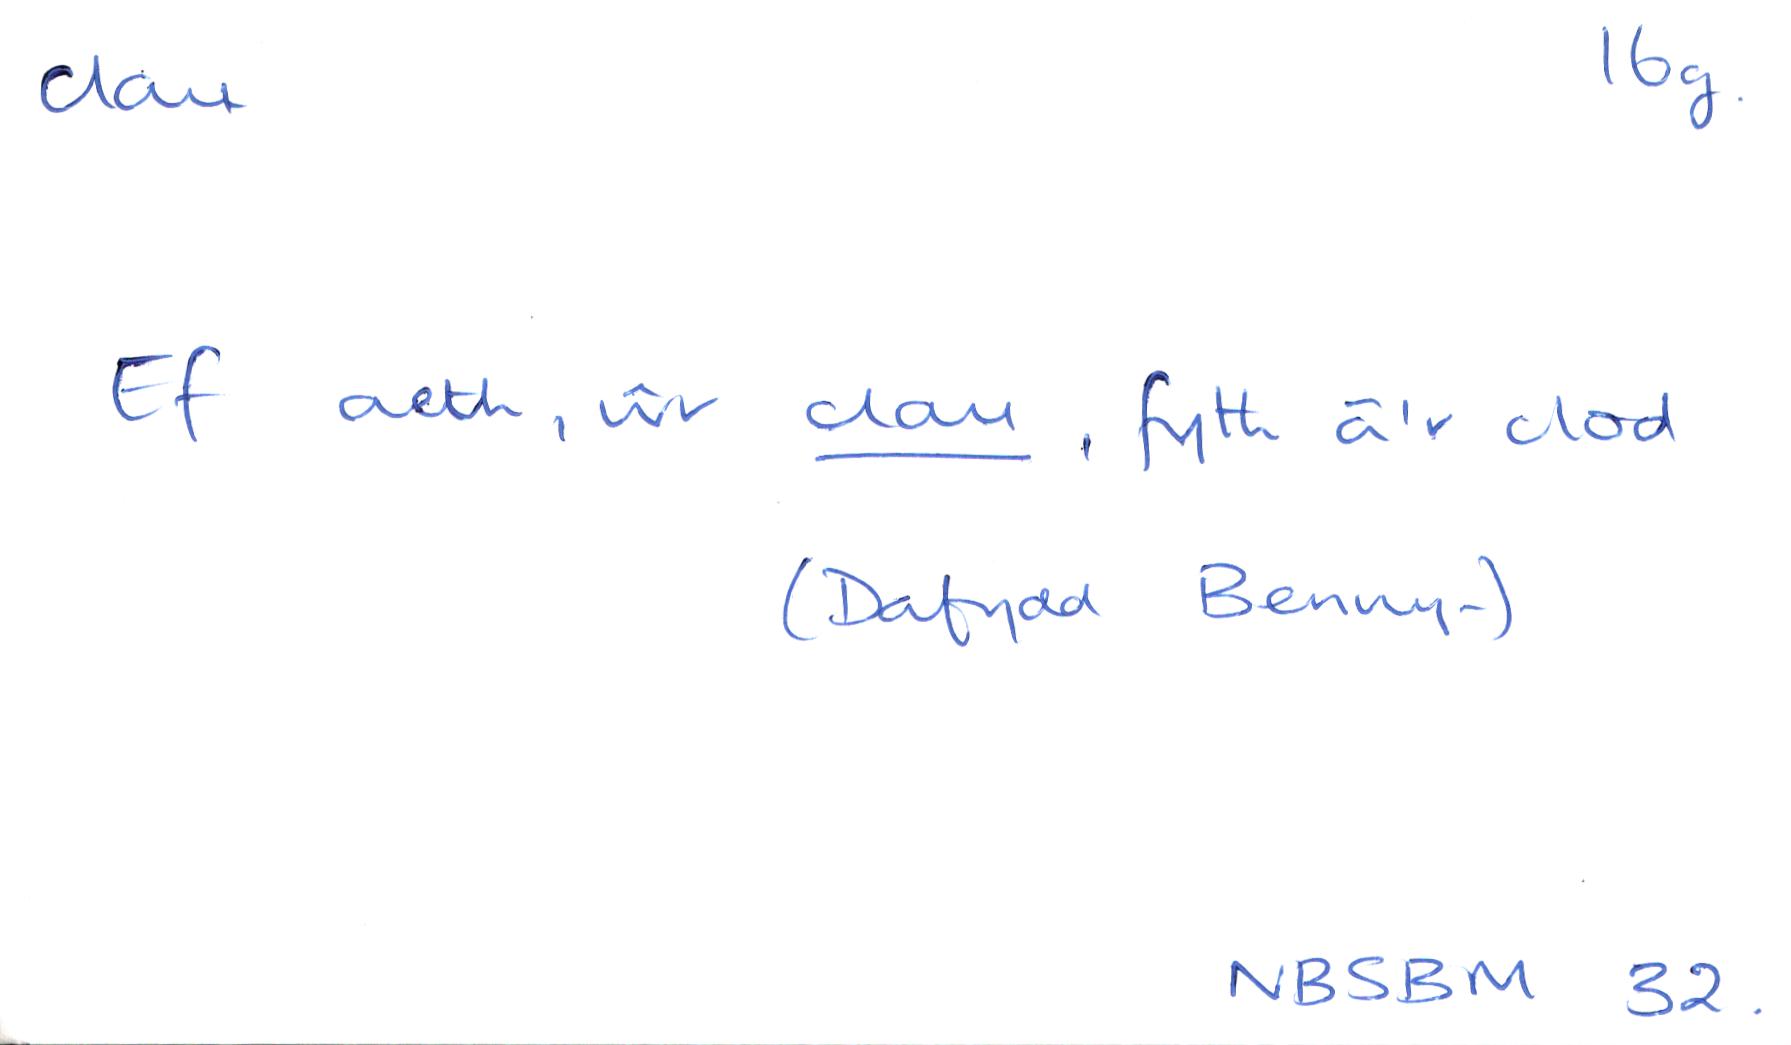 clau 16g.
Ef aeth, ŵr clau, fyth â'r clod
(Dafydd Benwyn)
NBSBM 32.